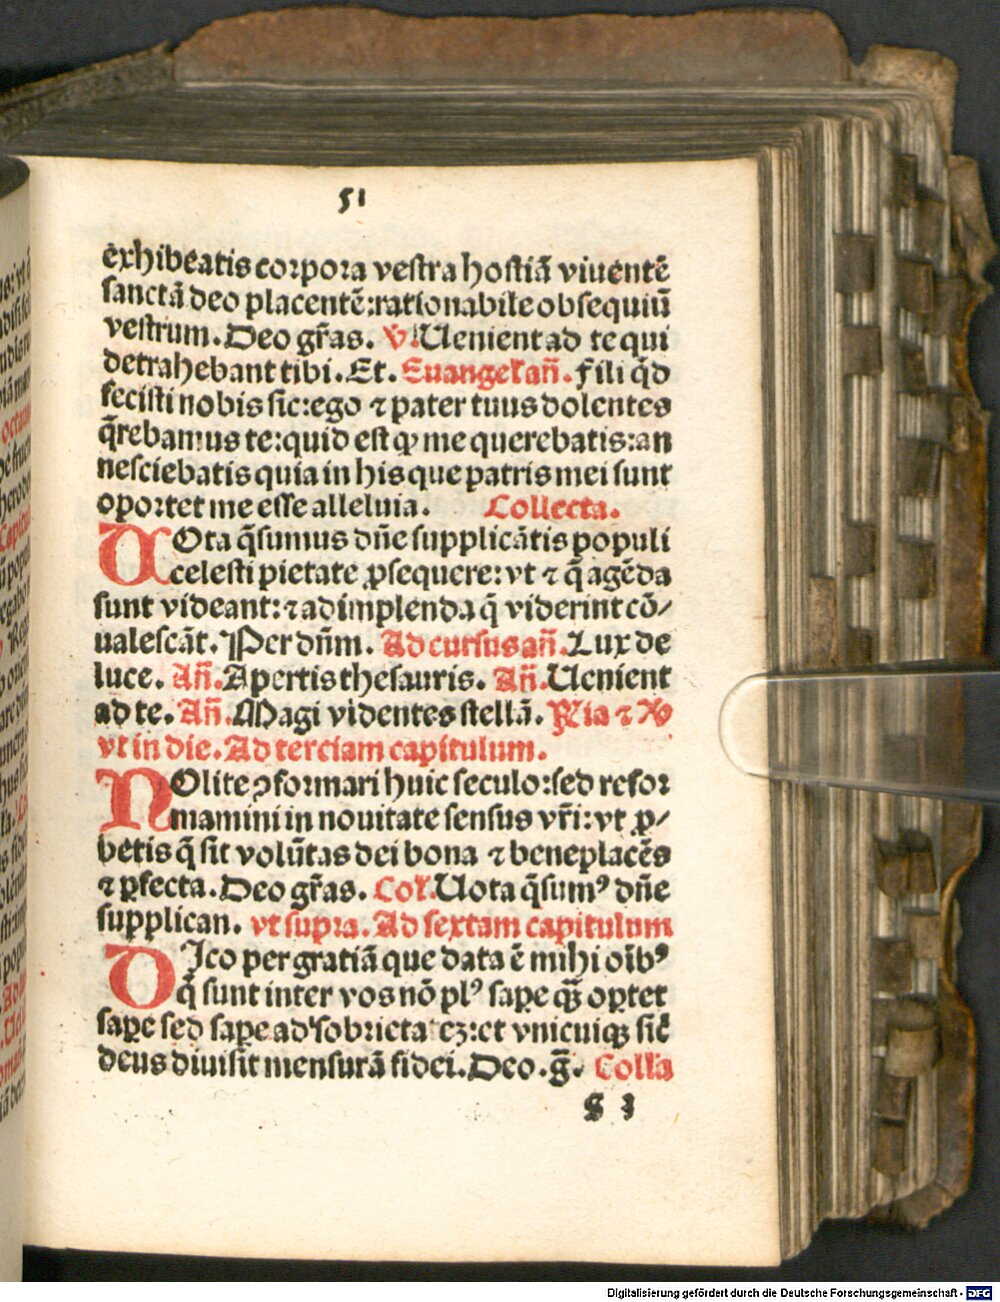 51
exhibeatis corpora vestra hostiā viuentē
sanctā deo placentē:rationabile obsequiū
vestrum. Deo gr̄as. V̾ Uenient ad te qui
detrahebant tibi. Et. Euangel' an̄. Fili q̄d
fecisti nobis sic:ego ⁊ pater tuus dolentes
q̄rebamus te:quid est ꝙ me querebatis:an
nesciebatis quia in his que patris mei sunt
oportet me esse alleluia. Collecta.
UOta q̄sumus dn̄e supplicātis populi
celesti pietate ꝓsequere:vt ⁊ q̄ agēda
sunt videant:⁊ adimplenda q̄ viderint cō/
ualescāt. Per dn̄m. Ad cursus an̄. Lux de
luce. An̄. Apertis thesauris. An̄. Uenient
ad te. An̄. Magi videntes stellā. R̾ia ⁊ V̾
vt in die. Ad terciam capitulum.
NOlite ꝯformari huic seculo:sed refor
mamini in nouitate sensus vr̄i:vt ꝓ/
betis q̄ sit volūtas dei bona ⁊ beneplacēs
⁊ ꝑfecta. Deo gr̄as. Col'. Uota q̄sumꝰ dn̄e
supplican. vt supra. Ad sextam capitulum
DIco per gratiā que data ē mihi oībꝰ
q̄ sunt inter vos nō plꝰ saꝑe qꝫ̄ oꝑtet
saꝑe sed saꝑe ad sobrietatē:et vnicuiqꝫ sic̄
deus diuisit mensurā fidei. Deo. g̅. Colla
S 3
Digitalisierung gefördert durch die Deutsche Forschungsgemeinschaft - DFG